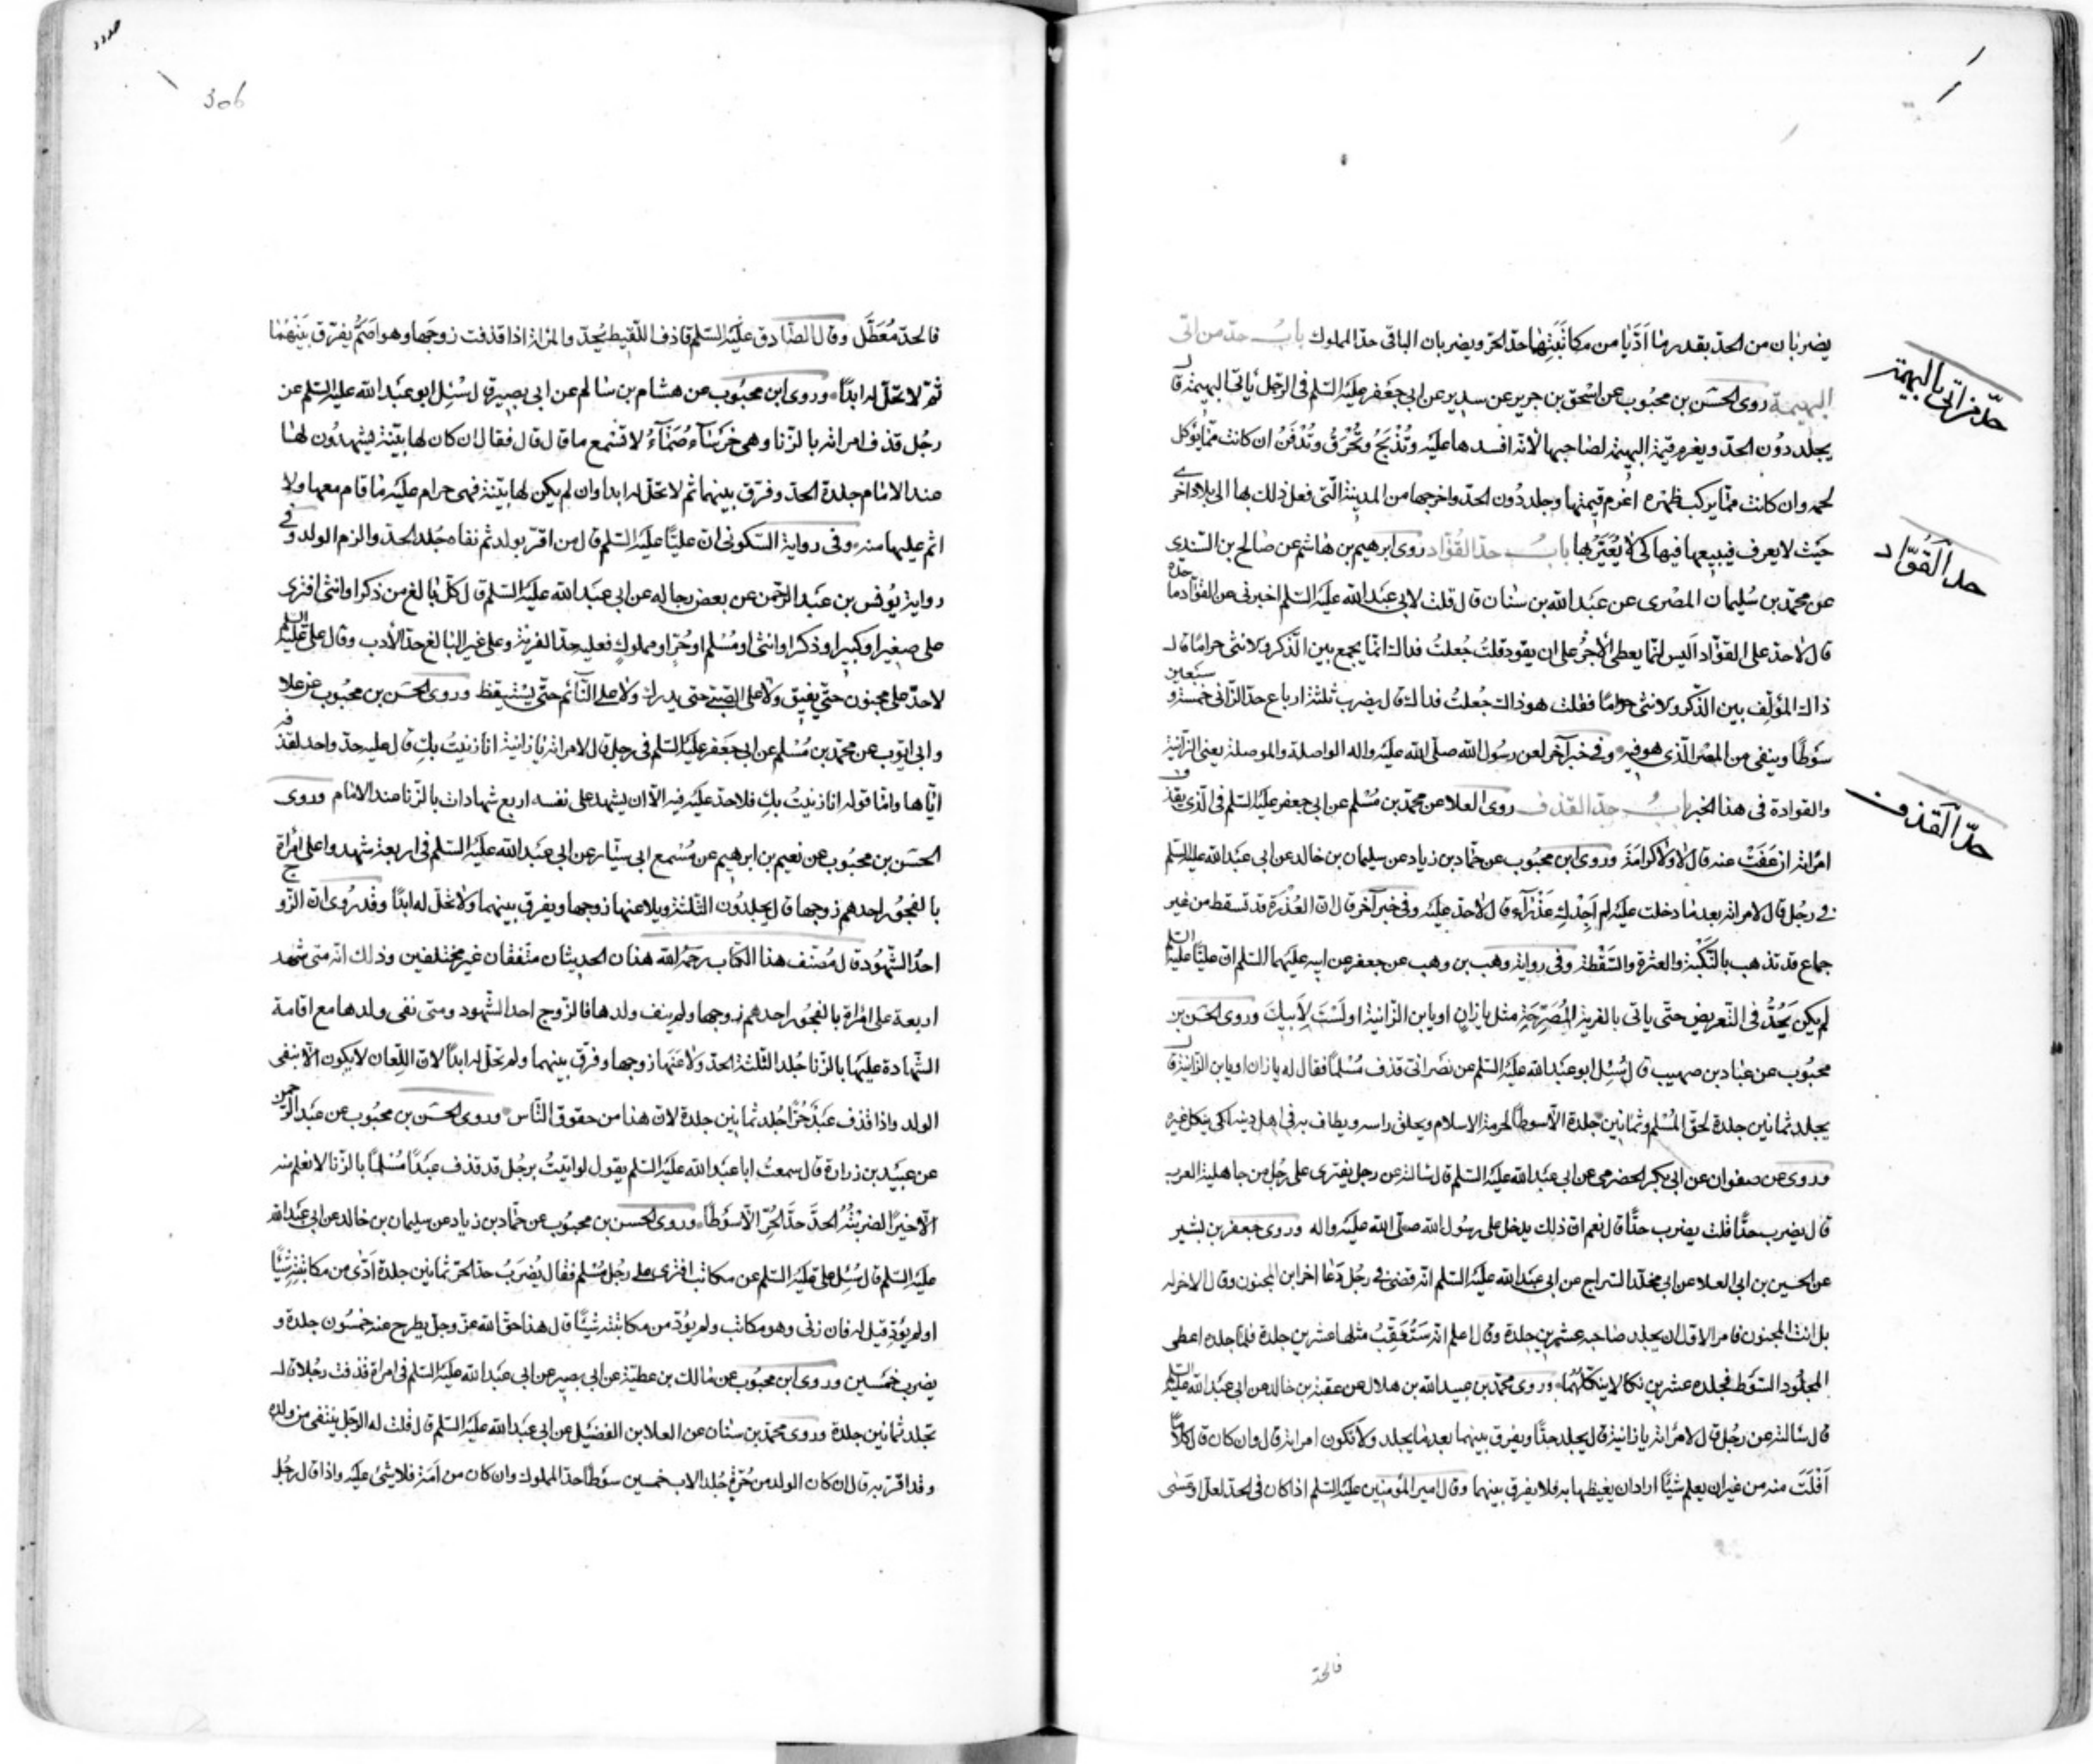 يضربان من الحدّ بقدر ما ادّيا من مكاتبتهما حدّ الحرّ ويضربان الباقى حدّ المملوك باب حدّ من اتى
البهيمة روى الحسن بن محبوب عن اسحق بن جرير عن سدير عن ابى جعفر عليه السّلم فى الرّجل ياتى البهيمة قال
يجلد دون الحدّ ويغرم قيمة البهيمة لصاحبها لانّه افسدها عليه وتذبح وتحرق وتدفن ان كانت ممّا يؤكل
لحمه وان كانت ممّا يركب ظهره اغرم قيمتها وجلد دون الحدّ واخرجها من المدينة الّتى فعل ذلك بها الى بلاد اخرى
حيث لا يعرف فيبيعها فيها كى لا يعيّر بها باب حدّ القوّاد روى ابرهيم بن هاشم عن صالح بن السّندى
عن محمّد بن سليمان المصرى عن عبد الله بن سنان قال قلت لابى عبد الله عليه السّلم اخبرنى عن القوّاد ما حدّه
قال لا حدّ على القوّاد اليس انّما يعطى الاجر على ان يقود قلت جعلت فداك انّما يجمع بين الذّكر والانثى حراما قال
ذاك المؤلّف بين الذّكر والانثى حراما فقلت هو ذاك جعلت فداك قال يضرب ثلثة ارباع حدّ الزّانى خمسة وسبعين
سوطا وينفى من المصر الّذى هو فيه وفى خبر آخر لعن رسول الله صلّى الله عليه واله الواصلة والموصلة يعنى الزّانية
والقوادة فى هذا الخبر باب حدّ القذف روى العلا عن محمّد بن مسلم عن ابى جعفر عليه السّلم فى الّذى يقذف
امراته ان عفت عنه قال لا ولا كرامة وروى ابن محبوب عن حمّاد بن زياد عن سليمان بن خالد عن ابى عبد الله عليه السّلم
فى رجل قال لامراته بعد ما دخلت عليه لم اجدك عذرآء قال لا حدّ عليه وفى خبر آخر قال انّ العذرة قد تسقط من غير
جماع قد تذهب بالنّكبة والعثرة والسّقطة وفى رواية وهب بن وهب عن جعفر عن ابيه عليهما السّلم انّ عليّا عليه السّلم
لم يكن يحدّ فى التّعريض حتّى ياتى بالفرية المصرّحة مثل يا زان او يا بن الزّانية او لست لابيك وروى الحسن بن
محبوب عن عباد بن صهيب قال سئل ابو عبد الله عليه السّلم عن نصرانى قذف مسلما فقال له يا زان او يا بن الزّانية قال
يجلد ثمانين جلدة لحقّ المسلم وثمانين جلدة الّا سوطا لحرمة الاسلام ويحلق راسه ويطاف به فى اهل دينه لكى ينكل غيره
وروى عن صفوان عن ابى بكر الحضرمى عن ابى عبد الله عليه السّلم قال سالته عن رجل يفترى على رجل من جاهلية العرب
قال يضرب حدّا قلت يضرب حدّا قال نعم انّ ذلك يدخل على رسول الله صلّى الله عليه واله وروى جعفر بن بشير
عن الحسين بن ابى العلا عن ابى مخلّد السّراج عن ابى عبد الله عليه السّلم انّه قضى فى رجل دعا اخر ابن المجنون وقال الاخر له
بل انت المجنون فامر الاوّل ان يجلد صاحبه عشرين جلدة وقال اعلم انّه ستعقب مثلها عشرين جلدة فلمّا جلده اعطى
المجلود السّوط فجلده عشرين نكالا ينكّلهما وروى محمّد بن عبيد الله بن هلال عن عقبة بن خالد عن ابى عبد الله عليه السّلم
قال سالته عن رجل قال لامراته يا زانية قال يجلد حدّا ويفرق بينهما بعد ما يجلد ولا تكون امراته قال وان كان قال كلاما
افلت منه من غير ان يعلم شيئا اراد ان يغيظها به فلا يفرق بينهما وقال امير المؤمنين عليه السّلم اذا كان فى الحدّ لعلّ او عسى
فالحدّ
حدّ من اتى بالبهيمة
حد القوّاد
حدّ القذف
306
فالحدّ معطّل وقال الصّادق عليه السّلم قاذف اللّقيط يحدّ والمراة اذا قذفت زوجها وهو اصمّ يفرّق بينهما
ثمّ لا تحلّ له ابدا وروى ابن محبوب عن هشام بن سالم عن ابى بصير قال سئل ابو عبد الله عليه السّلم عن
رجل قذف امراته بالزّنا وهى خرسآء صمّآء لا تسمع ما قال قال فقال ان كان لها بيّنة يشهدون لها
عند الامام جلدة الحدّ وفرّق بينهما ثم لا تحلّ له ابدا وان لم يكن لها بيّنة فهى حرام عليه ما قام معها ولا
اثم عليها منه وفى رواية السّكونى انّ عليّا عليه السّلم قال من اقرّ بولد ثم نفاه جلد الحدّ والزم الولد وفى
رواية يونس بن عبد الرّحمن عن بعض رجاله عن ابى عبد الله عليه السّلم قال كلّ بالغ من ذكر او انثى افترى
على صغير او كبير او ذكر او انثى او مسلم او حرّ او مملوك فعليه حدّ الفرية وعلى غير البالغ حدّ الأدب وقال على عليه السّلم
لا حدّ على مجنون حتّى يفيق ولا على الصّبى حتى يدرك ولا على النّآئم حتّى يستيقظ وروى الحسن بن محبوب عن علا
وابى ايّوب عن محمّد بن مسلم عن ابى جعفر عليه السّلم فى رجل قال لامراته يا زانية انا زنيت بك قال عليه حدّ واحد لقذفه
ايّاها وامّا قوله انا زنيت بك فلا حدّ عليه فيه الّا ان يشهد على نفسه اربع شهادات بالزّنا عند الامام وروى
الحسن بن محبوب عن نعيم بن ابرهيم عن مسمع ابى سيّار عن ابى عبد الله عليه السّلم فى اربعة شهدوا على امراة
بالفجور احدهم زوجها قال يجلدون الثّلثة ويلاعنها زوجها ويفرق بينهما ولا تحلّ له ابدا وقد روى انّ الزّوج
احد الشّهود قال مصنّف هذا الكتاب رحمه الله هذان الحديثان متّفقان غير مختلفين وذلك انّه متى شهد
اربعة على امراة بالفجور احدهم زوجها ولم ينف ولدها فالزّوج احد الشّهود ومتى نفى ولدها مع اقامة
الشّهادة عليها بالزّنا جلد الثّلثة الحدّ ولاعنها زوجها وفرّق بينهما ولم تحلّ له ابدا لانّ اللّعان لا يكون الّا بنفى
الولد واذا قذف عبد حرّا جلد ثمانين جلدة لانّ هذا من حقوق النّاس وروى الحسن بن محبوب عن عبد الرّحمن
عن عبيد بن زرارة قال سمعت ابا عبد الله عليه السّلم يقول لو اتيت برجل قد قذف عبدا مسلما بالزّنا لا نعلم منه
الّا خيرا لضربته الحدّ حدّ الحرّ الّا سوطا وروى الحسن بن محبوب عن حمّاد بن زياد عن سليمان بن خالد عن ابى عبد الله
عليه السّلم قال سئل على عليه السّلم عن مكاتب افترى على رجل مسلم فقال يضرب حدّ الحرّ ثمانين جلدة ادّى من مكاتبته شيئا
او لم يؤدّ قيل له فان زنى وهو مكاتب ولم يؤدّ من مكاتبته شيئا قال هذا حقّ الله عزّ وجلّ يطرح عنه خمسون جلدة و
يضرب خمسين وروى ابن محبوب عن مالك بن عطيّة عن ابى بصير عن ابى عبد الله عليه السّلم فى امراة قذفت رجلا قال
تجلد ثمانين جلدة وروى محمّد بن سنان عن العلا بن الفضيل عن ابى عبد الله عليه السّلم قال قلت له الرّجل ينتفى من ولده
وقد اقرّ به قال ان كان الولد من حرّة جلد الاب خمسين سوطا حدّ المملوك وان كان من امة فلا شىء عليه واذا قال رجل